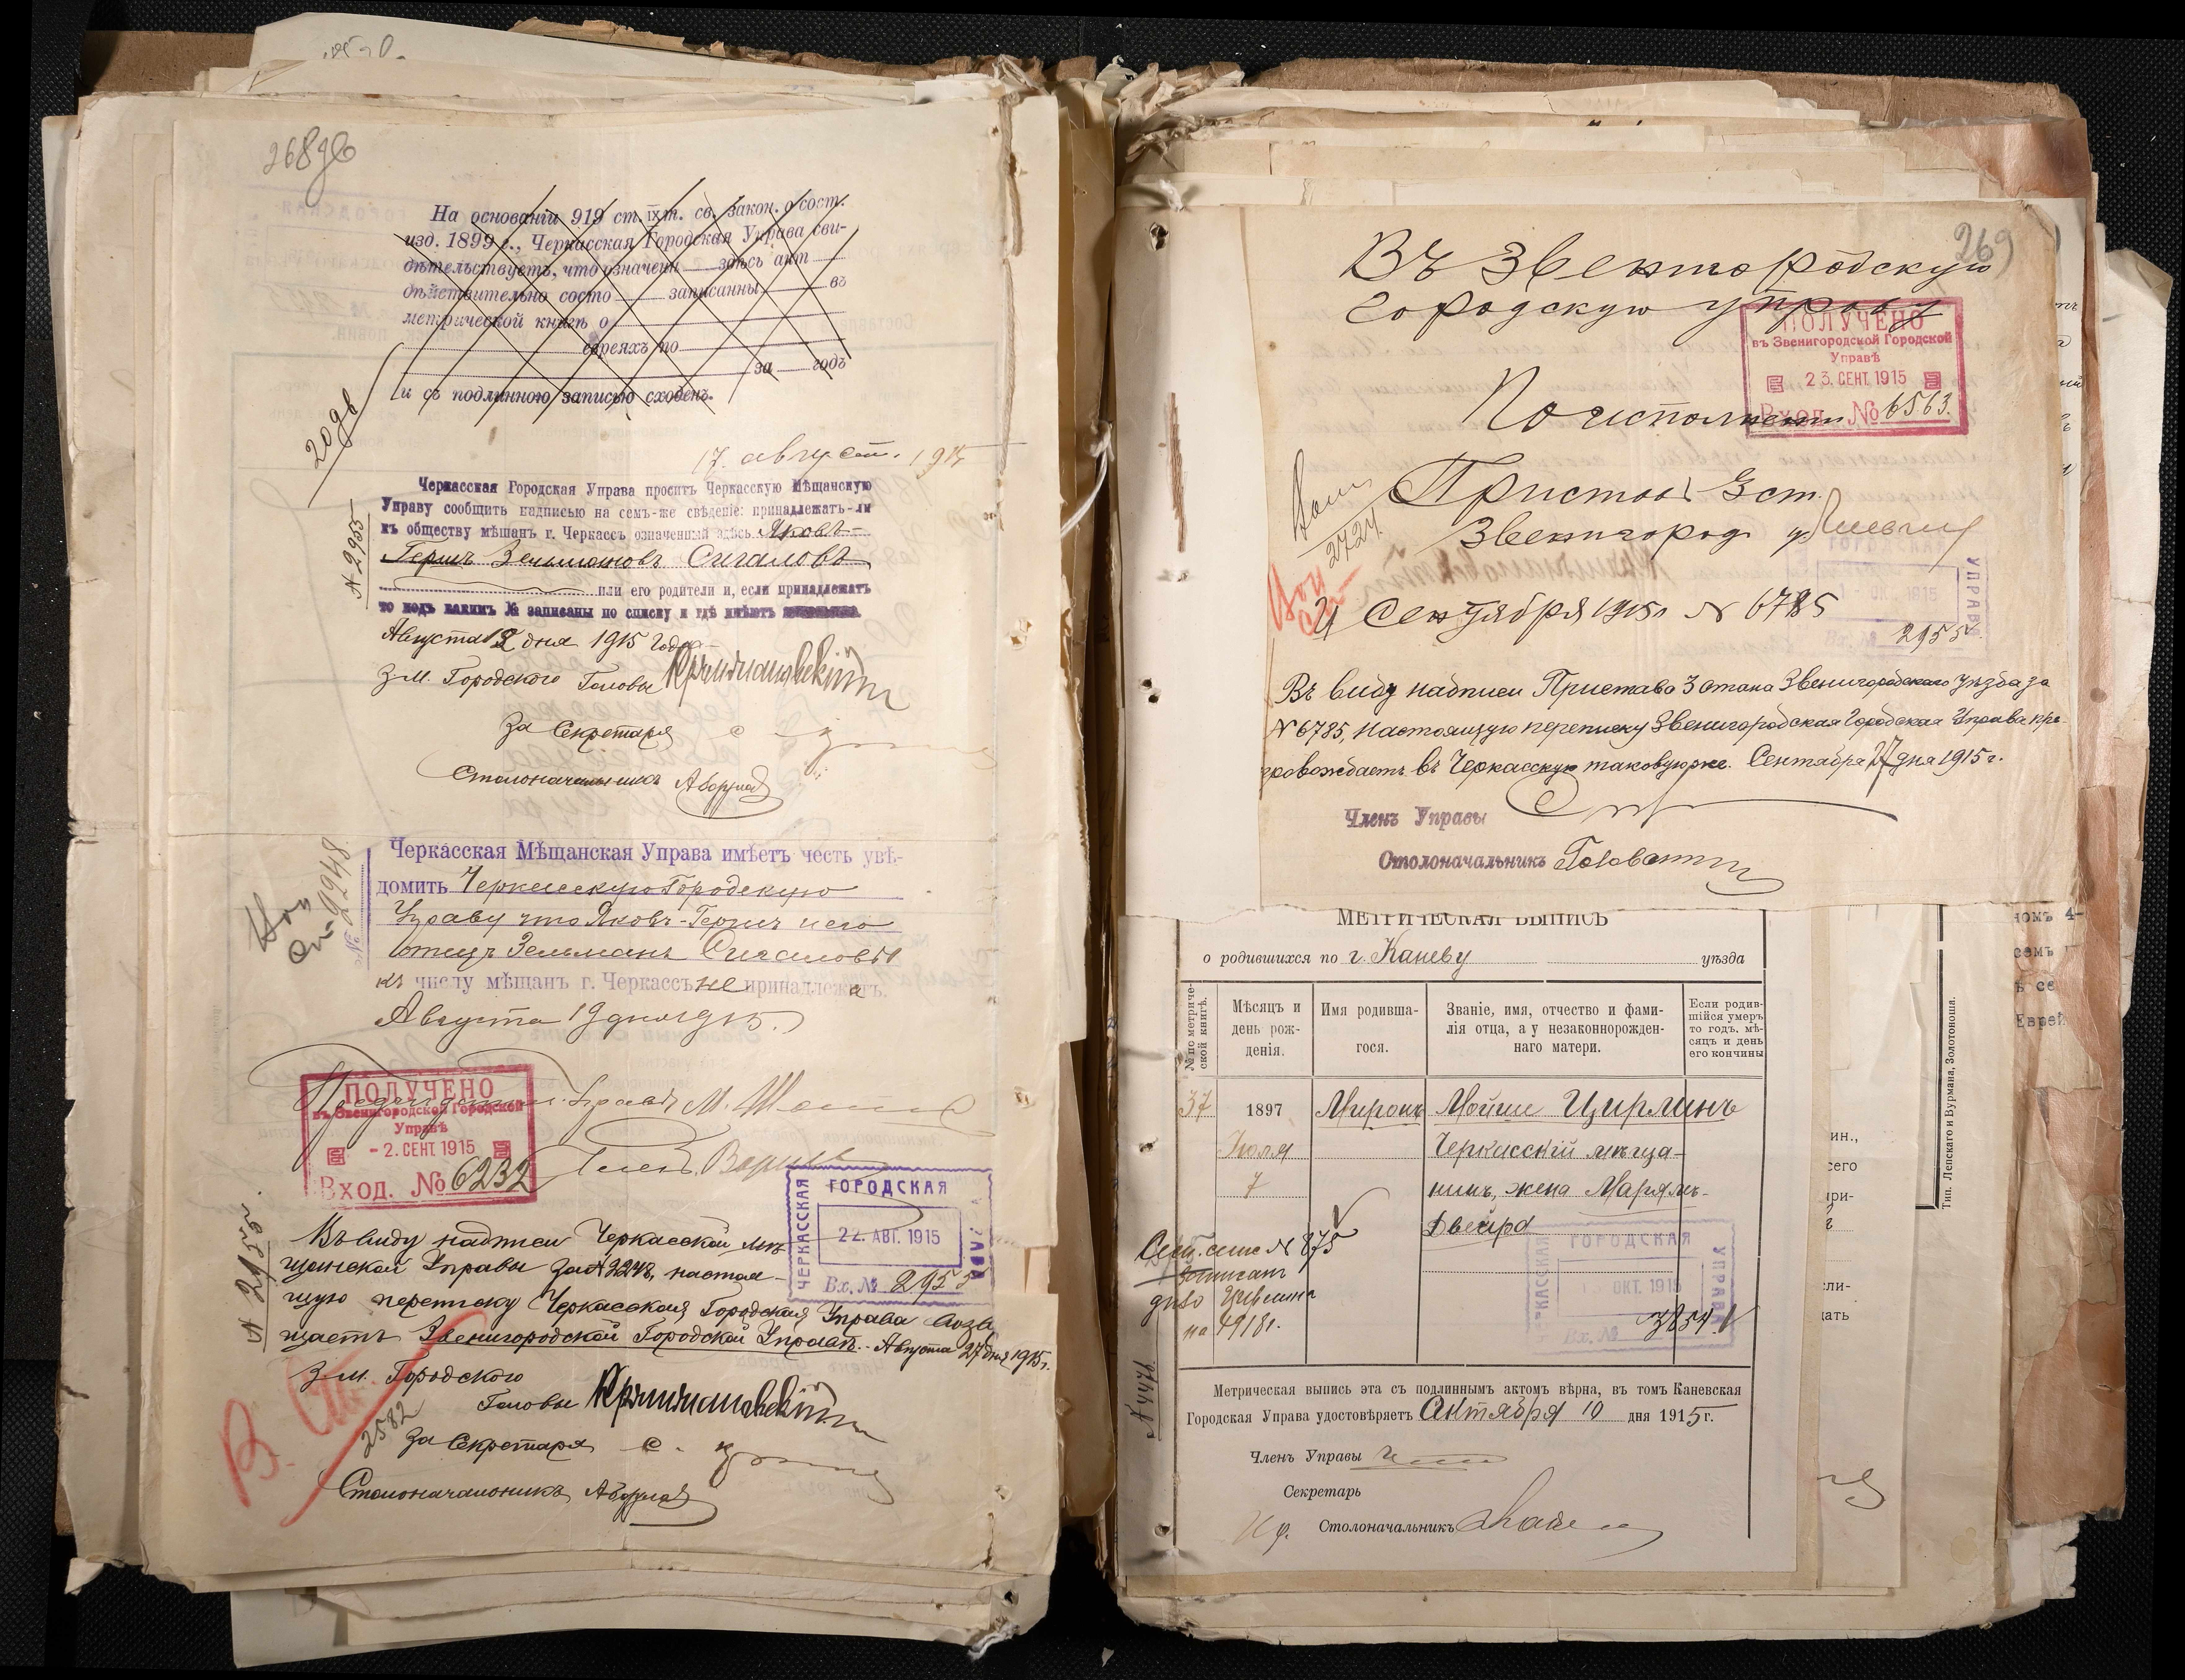 268 об
На основаніи 919 ст. IX т. св. закон. о сост.
изд. 1899 г., Черкасская Городская Управа сви-
дѣтельствуетъ, что означен здѣсь акт
дѣйствительно состо записанны въ
метрической книгѣ о
евреяхъ по
за годъ
и съ подлинною записью сходенъ.
17 август. 1915
Черкасская Городская Управа проситъ Черкасскую Мѣщанскую
Управу сообщить надписью на семъ-же свѣденіе: принадлежатъ-ли
къ обществу мѣшанъ г. Черкассъ означенный здѣсь Яковъ-
Гершъ Зельмановъ Сигаловъ
или его родители и, если принадлежатъ
то подъ какимъ № записаны по списку и гдѣ имѣютъ
№ 2955
Августа 18 дня 1915 года
З.м. Городского Головы
За Секретаря
Столоначальникъ
Черкасская Мѣщанская Управа имѣетъ честь увѣ-
домить Черкасскую Городскую
Управу что Яковъ-Гершъ и его
отецъ Зельманъ Сигаловы
къ числу мѣщанъ г. Черкассъ не принадлежатъ.
Августа 19 дня 1915.
ПОЛУЧЕНО
въ Звенигородской Городской
Управѣ
- 2. СЕНТ. 1915
Вход. № 6232
ЧЕРКАССКАЯ ГОРОДСКАЯ УПРАВА
22. АВГ. 1915
Вх. № 2955
№ 2955
Въ виду надписи Черкасской мѣ-
щанской Управы за № 2248, настоя-
щую переписку Черкасская Городская Управа возвра
щаетъ Звенигородской Городской Управѣ. Августа 27 дня 1915 г.
З.м. Городского
Головы
2582
За Секретаря
Столоначальникъ
269
Въ Звенигородскую
городскую управу
ПОЛУЧЕНО
въ Звенигородской Городской
Управѣ
23. СЕНТ. 1915
Вход. № 6563.
По исполнении
Приставъ 3 ст.
Звенигород. у.
2724
Сентября 1915 г. № 6785
2955
Въ виду надписи Пристава 3 стана Звенигородскаго уѣзда за
№ 6785, настоящую переписку Звенигородская Городская Управа пре
провождаетъ въ Черкасскую таковую же. Сентября 27 дня 1915 г.
Членъ Управы
Столоначальникъ
МЕТРИЧЕСКАЯ ВЫПИСЬ
о родившихся по г. Каневу уѣзда
№ по метриче-
ской книгѣ.
Мѣсяцъ и
день рож-
денія.
Имя родивша-
гося.
Званіе, имя, отчество и фами-
лія отца, а у незаконнорожден-
наго матери.
Если родив-
шійся умеръ
то годъ, мѣ-
сяцъ и день
его кончины
37 1897 Миронъ Мойше Цирлинъ
Іюля Черкасскій мѣща-
7 нинъ, жена Марямъ-
Двейра
№ 875
на 1918 г.
ГОРОДСКАЯ УПРАВА
ОКТ. 1915
Вх. № 3854
№ 4476
Метрическая выпись эта съ подлиннымъ актомъ вѣрна, въ томъ Каневская
Городская Управа удостовѣряетъ Сентября 10 дня 1915 г.
Членъ Управы
Секретарь
Столоначальникъ
Тип. Лепскаго и Вурмана, Золотоноша.